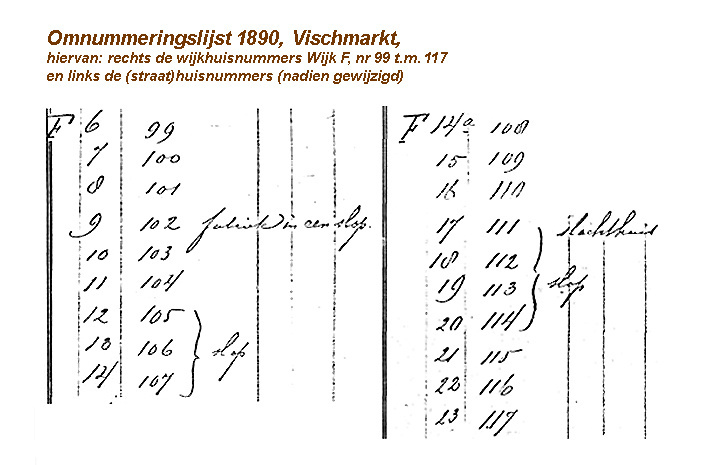 Omnummeringslijst 1890, Vischmarkt,
hiervan: rechts de wijkhuisnummers Wijk F, nr 99 t.m. 117
en links de (straat)huisnummers (nadien gewijzigd)
F 6 99
7 100
8 101
9 102 fabriek in een slop.
10 103
11 104
12 105
13 106 slop
14 107
F 14a 108
15 109
16 110
17 111 slachthuis
18 112
19 113 slop
20 114
21 115
22 116
23 117